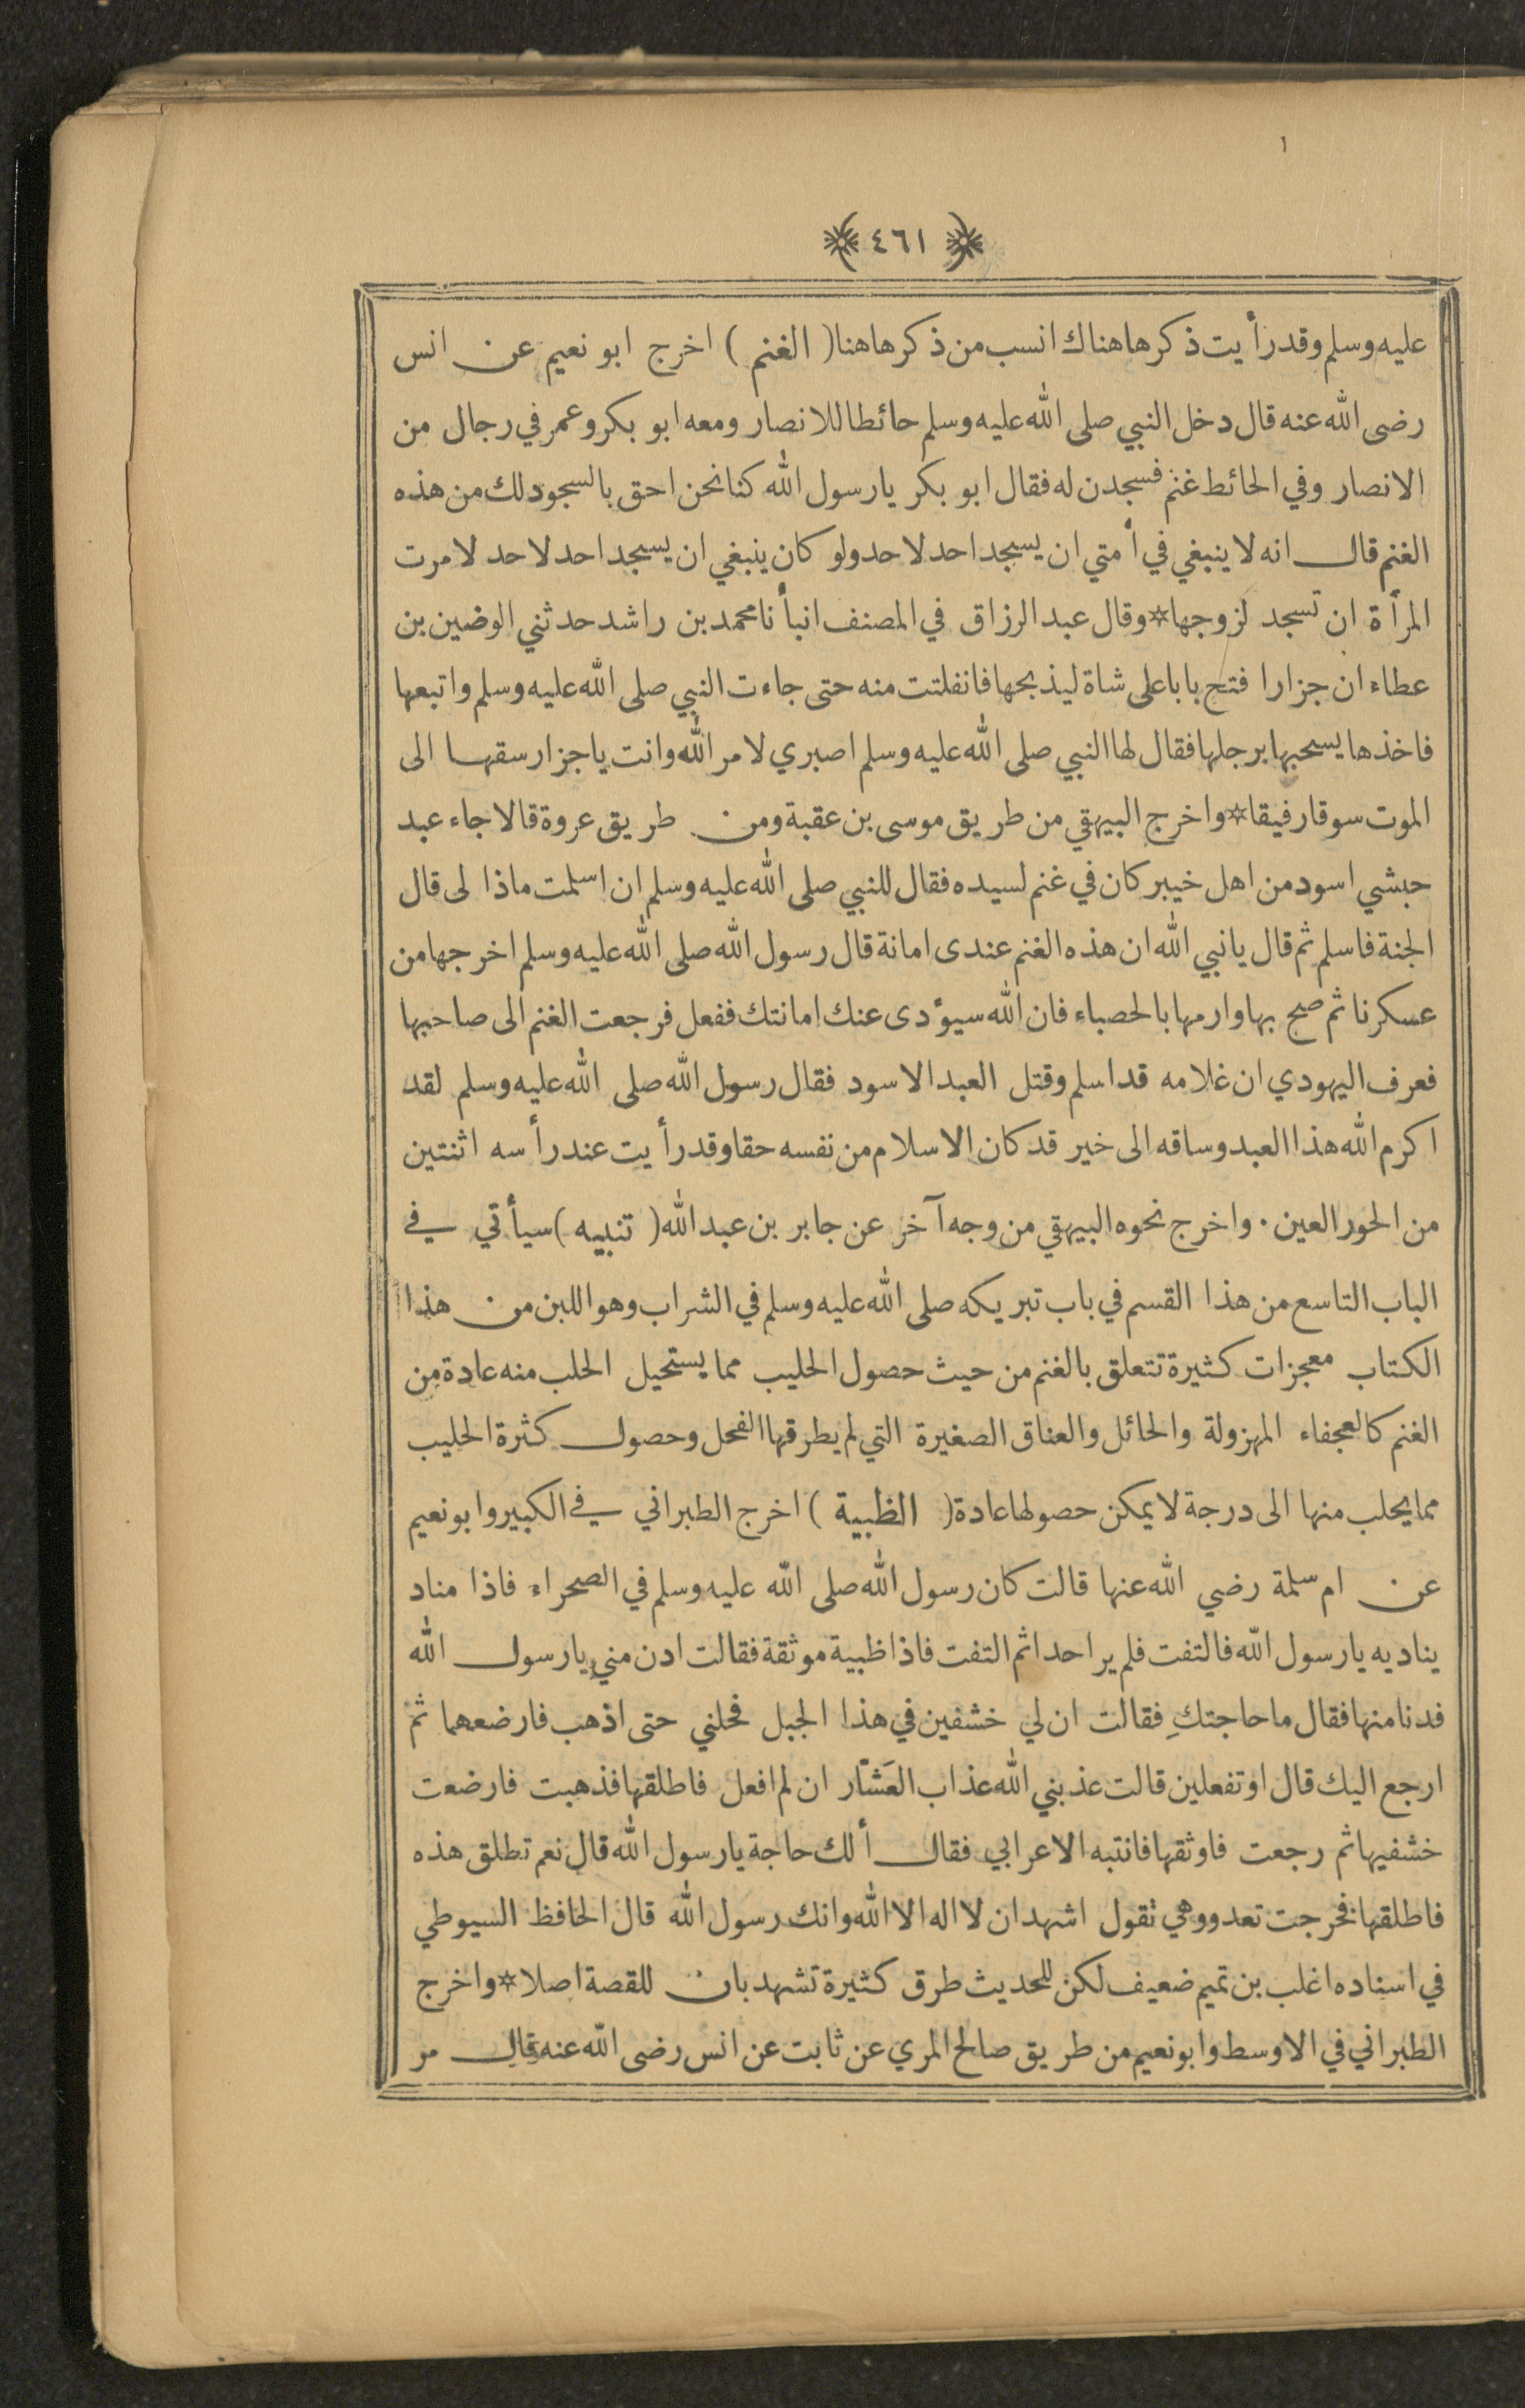 ١
﴿ ٤٦١ ﴾
عليه وسلم وقد رأيت ذكرها هناك انسب من ذكرها هنا ( الغنم ) اخرج ابو نعيم عن انس
رضى الله عنه قال دخل النبي صلى الله عليه وسلم حائطا للانصار ومعه ابو بكر وعمر في رجال من
الانصار وفي الحائط غنم فسجدن له فقال ابو بكر يارسول الله كنا نحن احق بالسجود لك من هذه
الغنم قال انه لا ينبغي في أمتي ان يسجد احد لاحد ولو كان ينبغي ان يسجد احد لاحد لامرت
المرأة ان تسجد لزوجها * وقال عبد الرزاق في المصنف انبأنا محمد بن راشد حدثني الوضين بن
عطاء ان جزارا فتح بابا على شاة ليذبحها فانفلتت منه حتى جاءت النبي صلى الله عليه وسلم واتبعها
فاخذها يسحبها برجلها فقال لها النبي صلى الله عليه وسلم اصبري لامر الله وانت ياجزار سقها الى
الموت سوقا رفيقا * واخرج البيهقي من طريق موسى بن عقبة ومن طريق عروة قالا جاء عبد
حبشي اسود من اهل خيبر كان في غنم لسيده فقال للنبي صلى الله عليه وسلم ان اسلمت ماذا لى قال
الجنة فاسلم ثم قال يانبي الله ان هذه الغنم عندى امانة قال رسول الله صلى الله عليه وسلم اخرجها من
عسكرنا ثم صح بها وارمها بالحصباء فان الله سيؤدى عنك امانتك ففعل فرجعت الغنم الى صاحبها
فعرف اليهودي ان غلامه قد اسلم وقتل العبد الاسود فقال رسول الله صلى الله عليه وسلم لقد
اكرم الله هذا العبد وساقه الى خير قد كان الاسلام من نفسه حقا وقد رأيت عند رأسه اثنتين
من الحور العين . واخرج نحوه البيهقي من وجه آخر عن جابر بن عبد الله ( تنبيه ) سيأتي في
الباب التاسع من هذا القسم في باب تبريكه صلى الله عليه وسلم في الشراب وهو اللبن من هذا
الكتاب معجزات كثيرة تتعلق بالغنم من حيث حصول الحليب مما يستحيل الحلب منه عادة من
الغنم كالعجفاء المهزولة والحائل والعناق الصغيرة التي لم يطرقها الفحل وحصول كثرة الحليب
مما يحلب منها الى درجة لا يمكن حصولها عادة ( الظبية ) اخرج الطبراني في الكبير وابو نعيم
عن ام سلمة رضي الله عنها قالت كان رسول الله صلى الله عليه وسلم في الصحراء فاذا مناد
يناديه يارسول الله فالتفت فلم ير احدا ثم التفت فاذا ظبية موثقة فقالت ادن مني يارسول الله
فدنا منها فقال ما حاجتكِ فقالت ان لي خشفين في هذا الجبل فحلني حتى اذهب فارضعهما ثم
ارجع اليك قال او تفعلين قالت عذبني الله عذاب العَشّار ان لم افعل فاطلقها فذهبت فارضعت
خشفيها ثم رجعت فاوثقها فانتبه الاعرابي فقال ألك حاجة يارسول الله قال نعم تطلق هذه
فاطلقها فخرجت تعدو وهي تقول اشهد ان لا اله الا الله وانك رسول الله قال الحافظ السيوطي
في اسناده اغلب بن تميم ضعيف لكن للحديث طرق كثيرة تشهد بان للقصة اصلا * واخرج
الطبراني في الاوسط وابو نعيم من طريق صالح المري عن ثابت عن انس رضى الله عنه قال مر